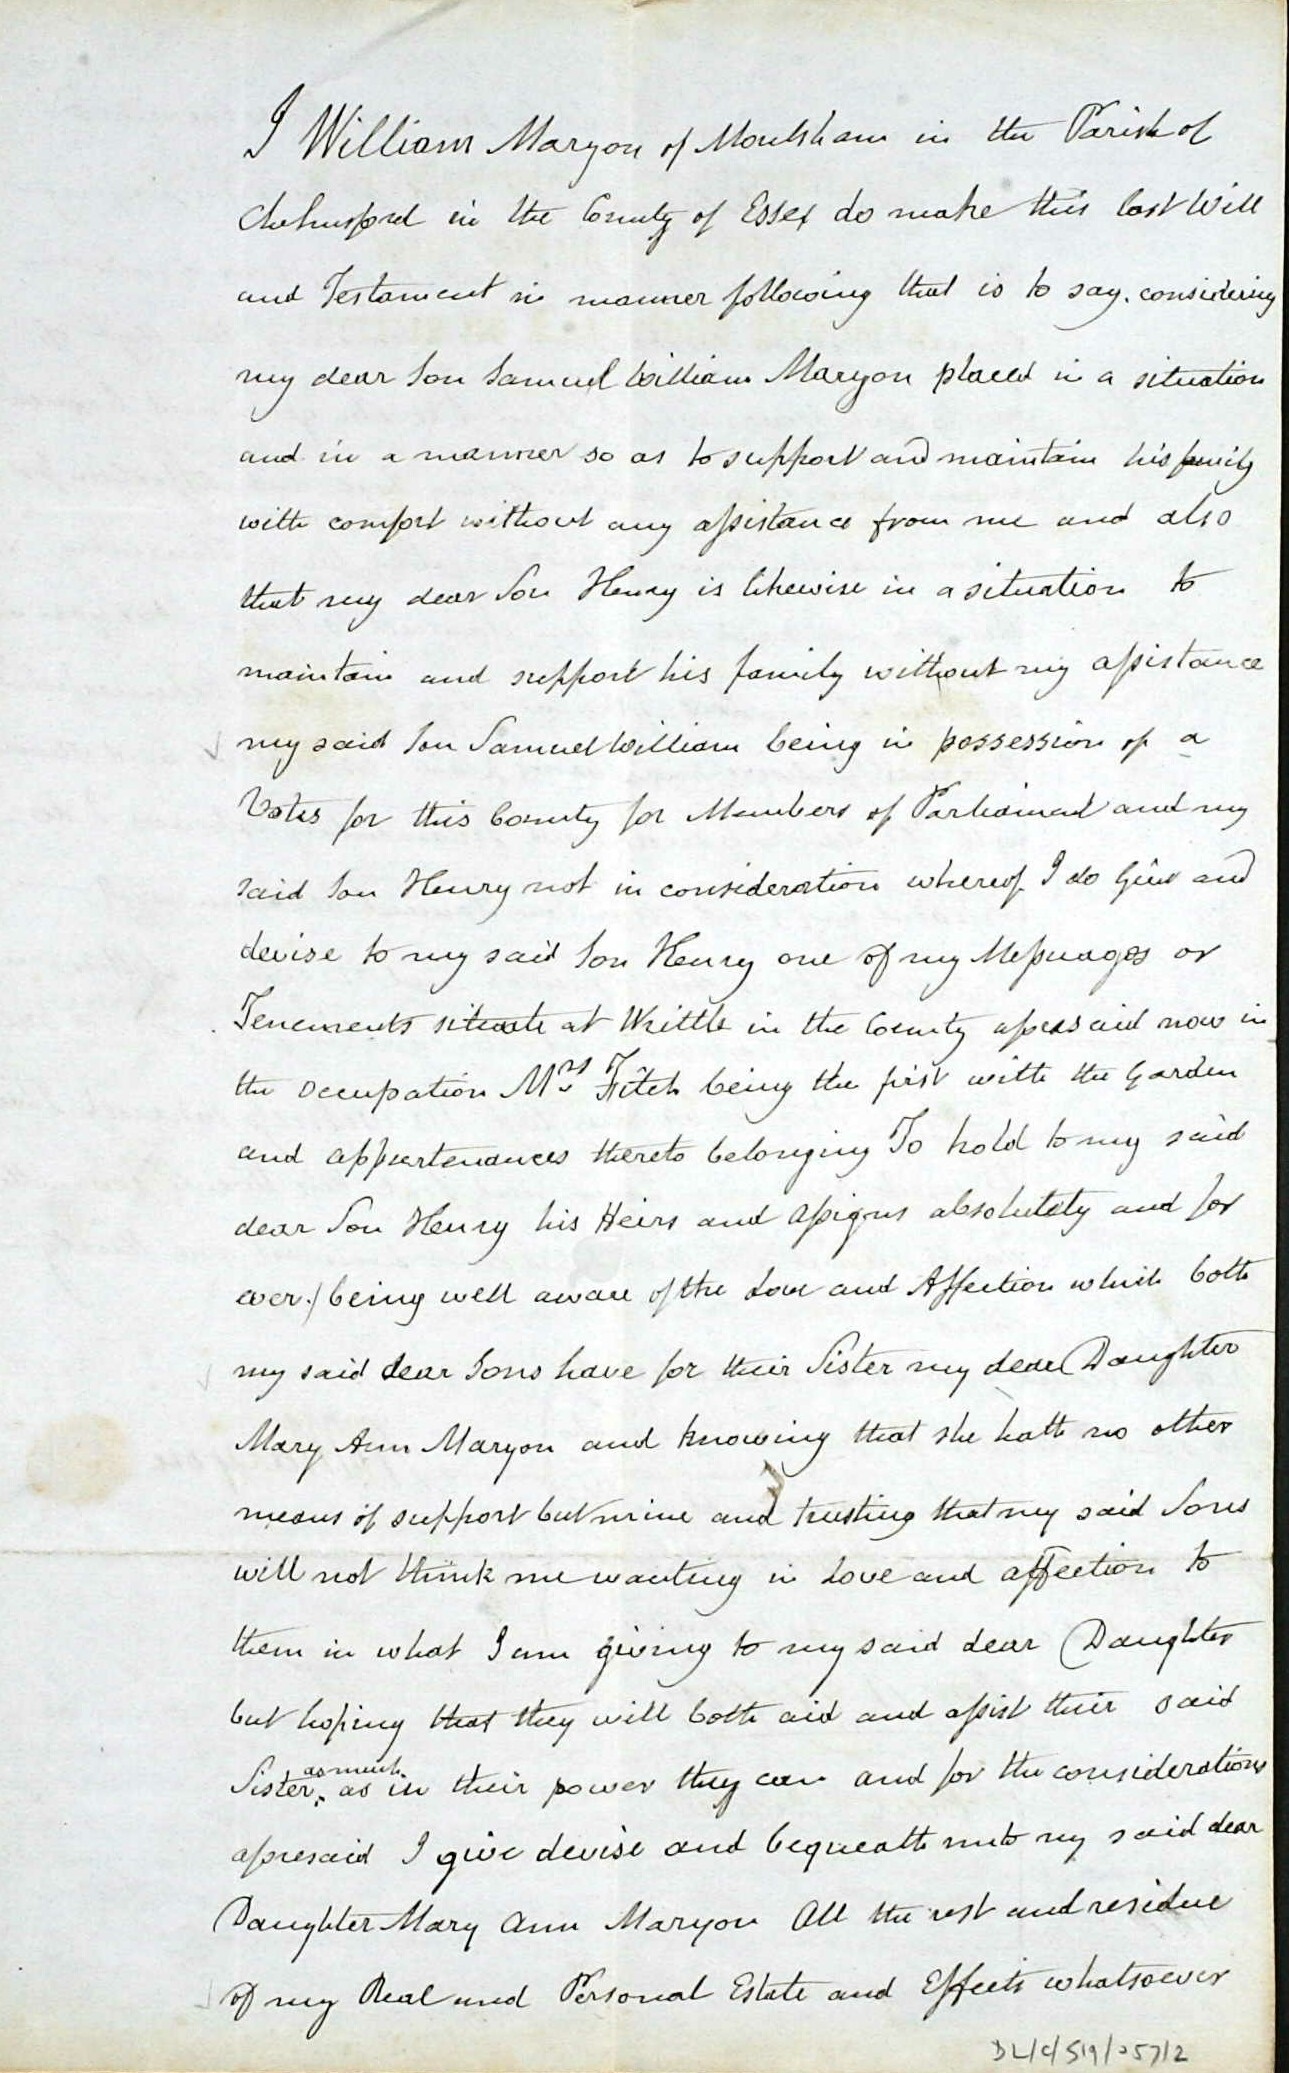 I William Maryon of Moulsham in the Parish of
Chelmsford in the County of Essex do make this last Will
and Testament in manner following that is to say. considering
my dear Son Samuel William Maryon placed in a situation
and in a manner so as to support and maintain his family
with comfort without any assistance from me and also
that my dear Son Henry is likewise in a situation to
maintain and support his family without my assistance
my said Son Samuel William being in possession of a
Votes for this County for Members of Parliament and my
said Son Henry not in consideration whereof I do Give and
devise to my said Son Henry one of my Messuages or
Tenements situate at Writtle in the County aforesaid now in
the occupation Mrs Fitch being the first with the Garden
and appurtenances thereto belonging To hold to my said
dear Son Henry his Heirs and Assigns absolutely and for
ever / being well aware of the Love and Affection which both
my said dear Sons have for their Sister my dear Daughter
Mary Ann Maryon and knowing that she hath no other
means of support but mine and trusting that my said Sons
will not think me wanting in Love and affection to
them in what I am giving to my said dear Daughter
but hoping that they will both aid and assist their said
Sister as much as in their power they can and for the considerations
aforesaid I give devise and bequeath unto my said dear
Daughter Mary Ann Maryon All the rest and residue
of my Real and Personal Estate and Effects whatsoever
DL/C/519/057/2